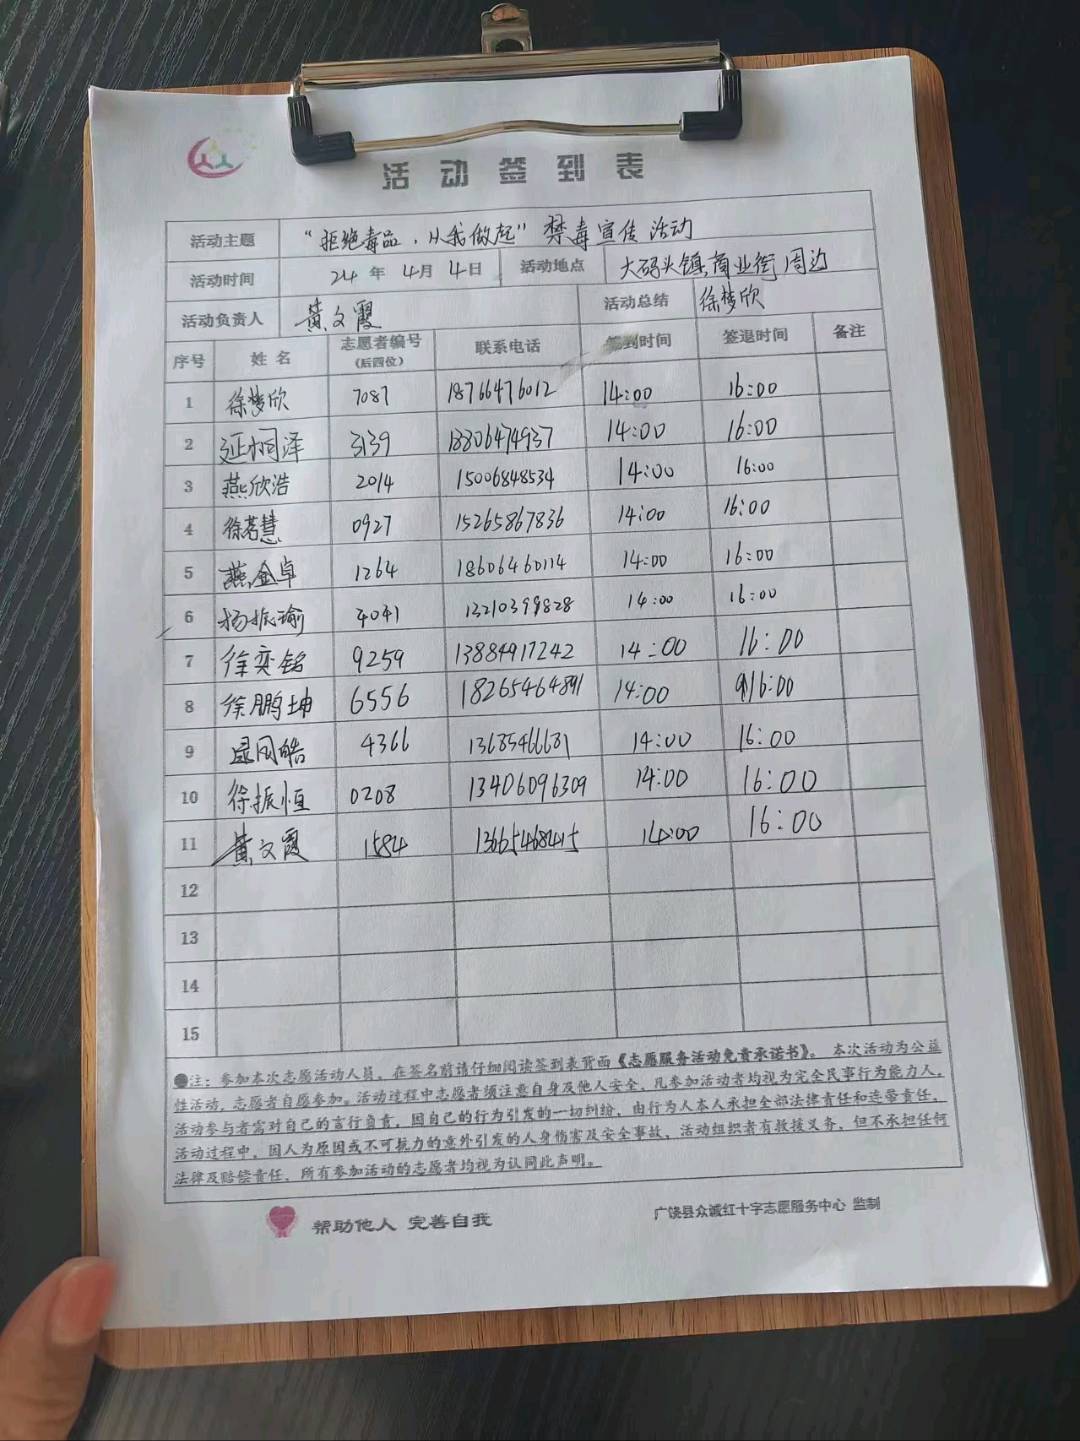 活动签到表
活动主题 “拒绝毒品，从我做起”禁毒宣传活动
活动时间 24年4月4日 活动地点 大码头镇商业街周边
活动负责人 黄文霞 活动总结 徐梦欣
序号 姓名 志愿者编号（后四位） 联系电话 签到时间 签退时间 备注
1 徐梦欣 7087 18766476012 14:00 16:00
2 延桐泽 3139 13806474937 14:00 16:00
3 燕欣浩 2014 15006848534 14:00 16:00
4 徐茗慧 0927 15265867836 14:00 16:00
5 燕金卓 1264 18606460114 14:00 16:00
6 杨振瑜 4041 13210399828 14:00 16:00
7 徐奕铭 9259 13884917242 14:00 16:00
8 徐鹏坤 6556 18265464891 14:00 16:00
9 4366 13685466681 14:00 16:00
10 徐振恒 0208 13406096309 14:00 16:00
11 黄文霞 1584 13665468415 14:00 16:00
12
13
14
15
注：参加本次志愿活动人员，在签名前请仔细阅读签到表背面《志愿服务活动免责承诺书》。本次活动为公益
性活动，志愿者自愿参加。活动过程中志愿者须注意自身及他人安全，凡参加活动者均视为完全民事行为能力人，
活动参与者需对自己的言行负责，因自己的行为引发的一切纠纷，由行为人本人承担全部法律责任和连带责任，
活动过程中，因人为原因或不可抗力的意外引发的人身伤害及安全事故，活动组织者有救援义务，但不承担任何
法律及赔偿责任，所有参加活动的志愿者均视为认同此声明。
帮助他人 完善自我
广饶县众诚红十字志愿服务中心 监制